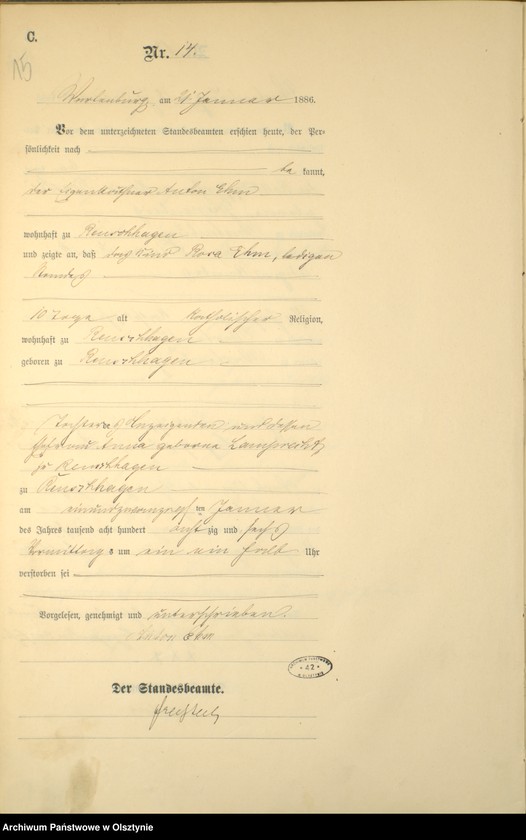 C.
Nr. 14.
15
Wartenburg am Januar 1886.
Vor dem unterzeichneten Standesbeamten erschien heute, der Per-
sönlichkeit nach
be kannt,
der Eigenkäthner Anton Ehm
wohnhaft zu Reuschhagen
und zeigte an, daß das Kind Rosa Ehm, ledigen
Standes
10 Tage alt katholischer Religion,
wohnhaft zu Reuschhagen
geboren zu Reuschhagen
Tochter des Anzeigenden und dessen
Ehefrau Anna geborene Lamprecht
zu Reuschhagen
zu Reuschhagen
am einundzwanzigsten Januar
des Jahres tausend acht hundert acht zig und sechs
Vormittags um ein ein halb Uhr
verstorben sei
Vorgelesen, genehmigt und unterschrieben.
Anton Ehm
ARCHIWUM PAŃSTWOWE
* 42 *
W OLSZTYNIE
Der Standesbeamte.
Archiwum Państwowe w Olsztynie